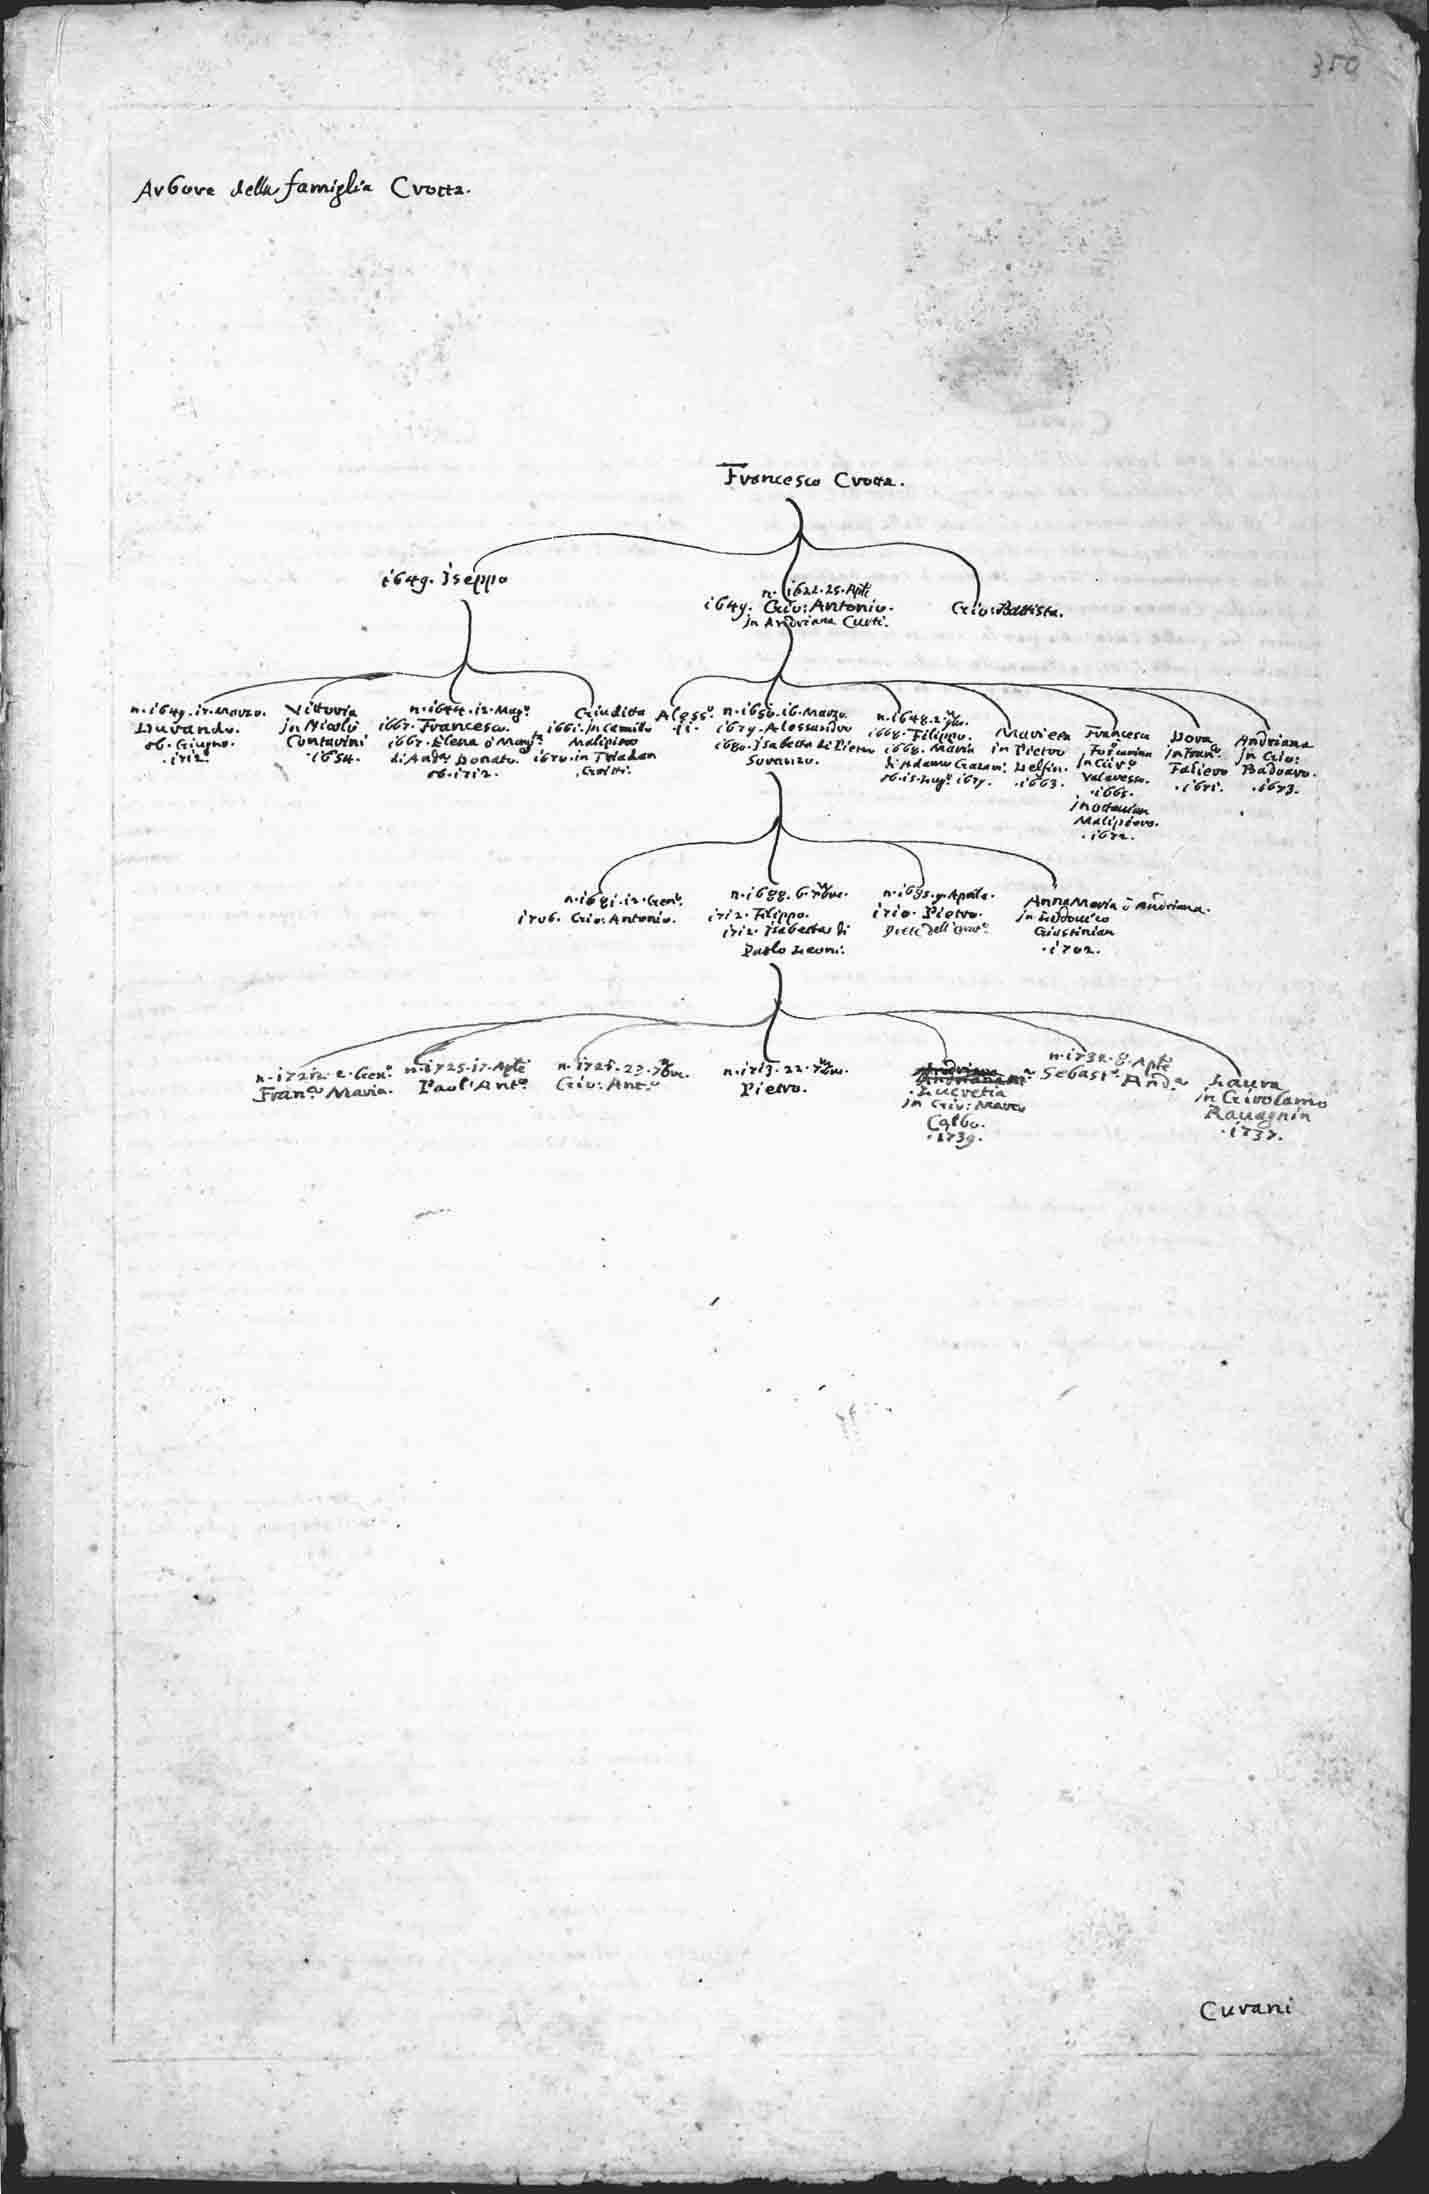 350
Arbore della famiglia Crotta.
Francesco Crotta.
1649. Iseppo
n. 1622. 25. Aple
1649. Gio: Antonio.
in Andriana Curti.
Gio: Battista.
n. 1649. 17. Marzo.
Durando.
ob. Giugno.
. 1712.
Vittoria
in Nicolò
Contarini
. 1654.
n. 1644. 12. Magº.
1667. Francesco.
di Andª Donato.
ob. 1712.
Giuditta
1661. in Camillo
Malipiero
1670. in Triadan
Gritti.
Alessº.
n. 1650. 16. Marzo.
1679. Alessandro
1680. Isabetta di Pietro
Soranzo.
n. 1648. 2. 9bre.
1668. Filippo.
1668. Maria
ob. 15. Lugº. 1677.
Marieta
in Pietro
Delfin.
. 1663.
Francesca
in
Valaresso.
. 1665.
in Ottavian
Malipiero.
. 1672.
Dora
in Franº
Falier
. 1671.
Andriana
in Gio:
Badoaro.
. 1673.
n. 1681. 12. Genº.
1706. Gio: Antonio.
n. 1688. 6. 7bre.
1712. Filippo.
1712. Isabetta di
Paolo Leoni.
n. 1685. 9. Aprile.
1710. Pietro.
Anna Maria ò Andriana.
in Lodovico
Giustinian
. 1702.
2. Genº.
Franº Maria.
n. 1725. 17. Aple
Paol' Antº.
n. 1726. 23. 7bre.
Gio: Antº.
n. 1713. 22. 7bre.
Pietro.
. Lucretia
in Gio: Marco
Calbo.
. 1739.
n. 1732. 8. Aple
Sebastº. Andª
Laura
in Girolamo
Ravagnin
. 1737.
Curani